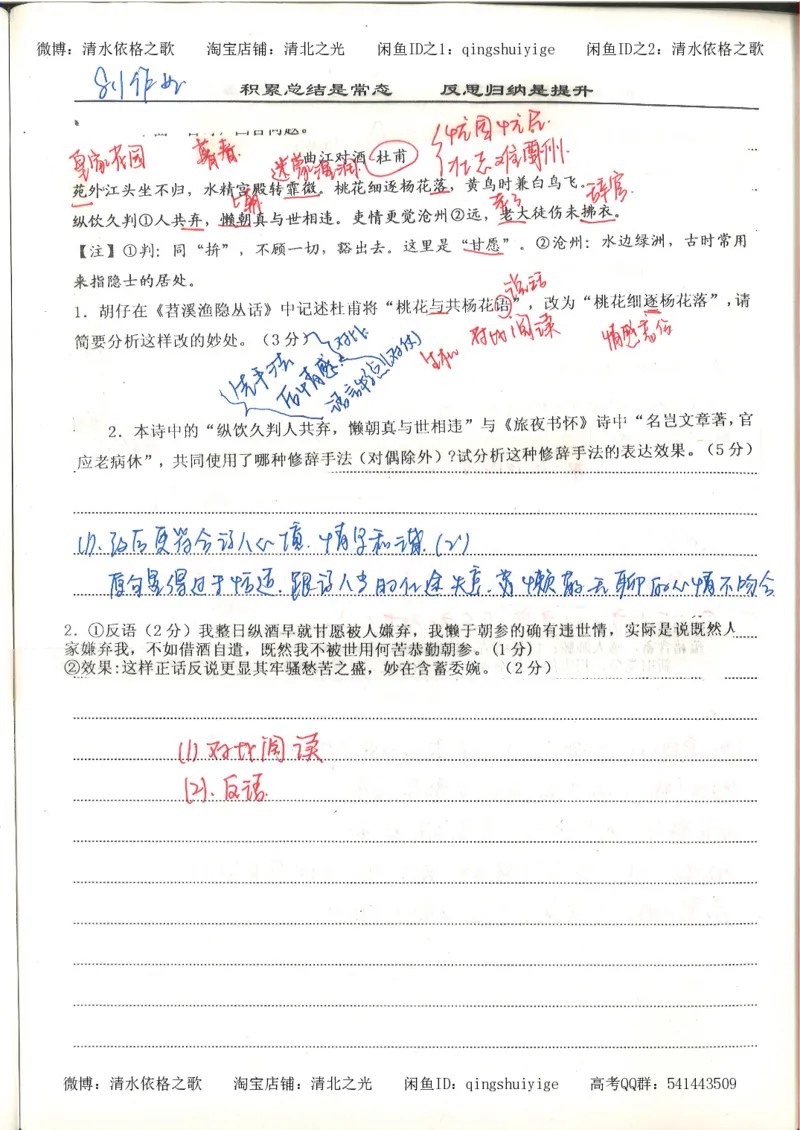 微博：清水依格之歌 淘宝店铺：清北之光 闲鱼ID之1：qingshuiyige 闲鱼ID之2：清水依格之歌
积累总结是常态 反思归纳是提升
回答问题。
皇家花园 暮春 迷蒙 壮志难酬
曲江对酒 杜甫
苑外江头坐不归，水精宫殿转霏微。桃花细逐杨花落，黄鸟时兼白鸟飞。
上朝 老了 辞官
纵饮久判①人共弃，懒朝真与世相违。吏情更觉沧州②远，老大徒伤未拂衣。
【注】①判：同“拚”，不顾一切，豁出去。这里是“甘愿”。②沧州：水边绿洲，古时常用
来指隐士的居处。
说话
1．胡仔在《苕溪渔隐丛话》中记述杜甫将“桃花与共杨花语”，改为“桃花细逐杨花落”，请
简要分析这样改的妙处。（3分）
对比 对比阅读
先手法
后情感
语言特点(对仗)
2．本诗中的“纵饮久判人共弃，懒朝真与世相违”与《旅夜书怀》诗中“名岂文章著，官
应老病休”，共同使用了哪种修辞手法（对偶除外）?试分析这种修辞手法的表达效果。（5分）
(1)、改后更符合诗人心境．情景和谐．(2')
原句显得过于恬适．跟诗人当时仕途失意．为懒散无聊的心情不吻合
2．①反语（2分）我整日纵酒早就甘愿被人嫌弃，我懒于朝参的确有违世情，实际是说既然人
家嫌弃我，不如借酒自遣，既然我不被世用何苦恭勤朝参。(1分)
②效果:这样正话反说更显其牢骚愁苦之盛，妙在含蓄委婉。（2分）
(1)对比阅读
(2)．反语．
微博：清水依格之歌 淘宝店铺：清北之光 闲鱼ID：qingshuiyige 高考QQ群：541443509